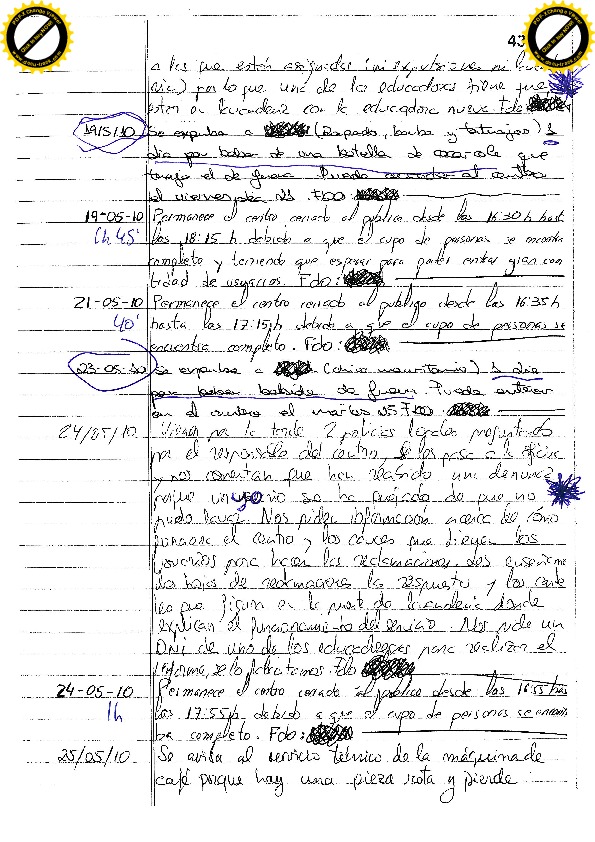 43
a los que están asignados
por lo que uno de los educadores tiene que
estar en lavandería con la educadora nueva. Fdo
19/5/10 Se expulsa a (Rapado, barba y tatuajes) 1
día por beber de una botella de que
trajo el de fuera. Puede al centro
el viernes día 21. Fdo
19-05-10 Permanece el centro cerrado al público desde las 16:30 h hasta
1h 45' las 18:15 h debido a que el cupo de personas se encontra
completo y teniendo que esperar para poder entrar gran can-
tidad de usuarios. Fdo:
21-05-10 Permanece el centro cerrado al público desde las 16:35 h
40' hasta las 17:15h debido a que el cupo de personas se
encuentra completo. Fdo:
23-05-10 Se expulsa a (chico mauritano) 1 día
por beber bebida de fuera. Puede entrar
en el centro el martes 25. Fdo
24/05/10 Vienen por la tarde 2 policías locales preguntando
por el responsable del centro, se les pasa a la oficina
y nos comentan que han recibido una denuncia
porque un usuario se ha quejado de que no
pudo lavar. Nos piden información acerca de cómo
funciona el centro y los cauces que tienen los
usuarios para hacer las reclamaciones. Les enseñamos
las hojas de reclamaciones la respuesta y los carte
les que figuran en la puerta de lavandería donde
explican el funcionamiento del servicio. Nos pide un
DNI de uno de los educadores para realizar el
informe, se lo facilitamos. Fdo
24-05-10 Permanece el centro cerrado al público desde las 16:55 has
1h las 17:55h debido a que el cupo de personas se encuen
tra completo. Fdo:
25/05/10 Se avisa al servicio técnico de la máquina de
café porque hay una pieza rota y pierde